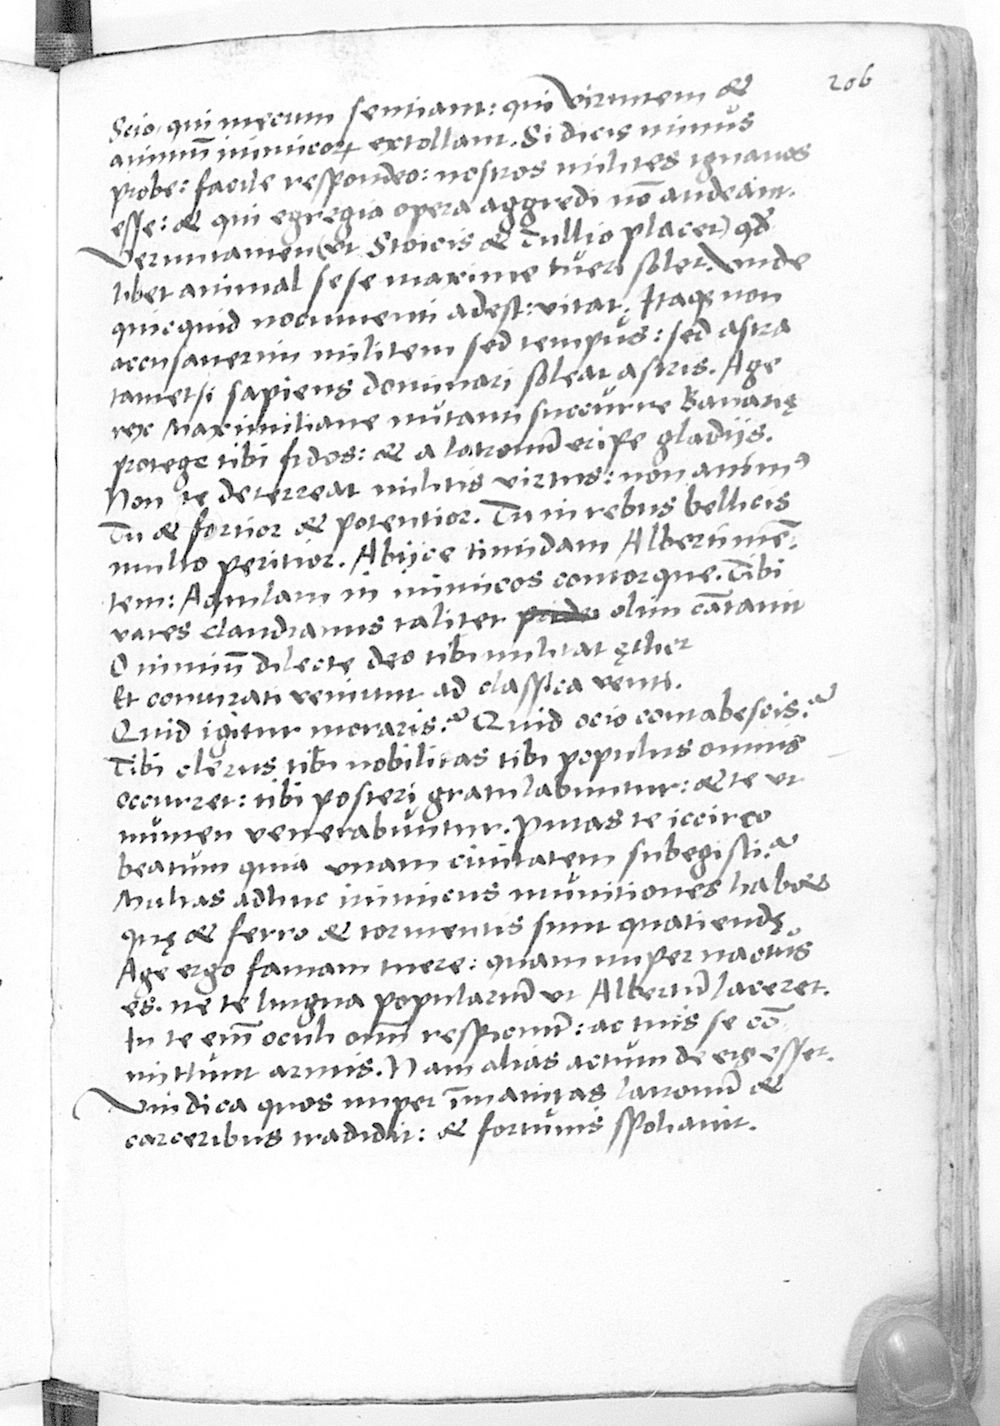 206
Scio, qui mecum sentiant: qui Virtutem &
animū inimicoꝝ extollant. Si dicis minus
probe: facile respondeo: nostros milites ignauos
esse: & qui egregia opera aggredi nō audeant.
Veruntamen (vt Stoicis & Tullio placet) qđ
libet animal sese maxime tueri solet. Vnde
quicquid nocumenti adest: vitat. Itaqꝫ non
accusauerim militem sed tempus: sed astra
tametsi sapiens dominari soleat astris. Age
rex Maximiliane nutanti succurre Bauarię
protege tibi fidos: & a latronū eripe gladijs.
Non te deterreat militis virtus: non animꝰ
Tu & fortior & potentior. Tu in rebus bellicis
multo peritior. Abijce timidam Alberti mē-
tem: Aquilam in inimicos contorque. Tibi
vates claudianus taliter olim cātauit
O nimiū dilecte deo tibi militat ęther
Et coniurati veniunt ad classica venti.
Quid igitur moraris? Quid ocio contabescis?
Tibi clerus tibi nobilitas tibi populus omnis
occurret: tibi posteri gratulabuntur: & te vt
numen venerabuntur. Putas te iccirco
beatum quia vnam ciuitatem subegisti?
Multas adhuc inimicus munitiones habet
quę & ferro & tormentis sunt quatiendę
Age ergo famam tuere: quam nuper nactus
es. ne te lingua popularium vt Albertū laceret.
In te em̄ oculi om̄ respiciunt: ac tuis se cō-
mittunt armis. Nam alias actum de eis esset.
Vindica quos nuper īmanitas latronū &
carceribus tradidit: & fortunis spoliauit.